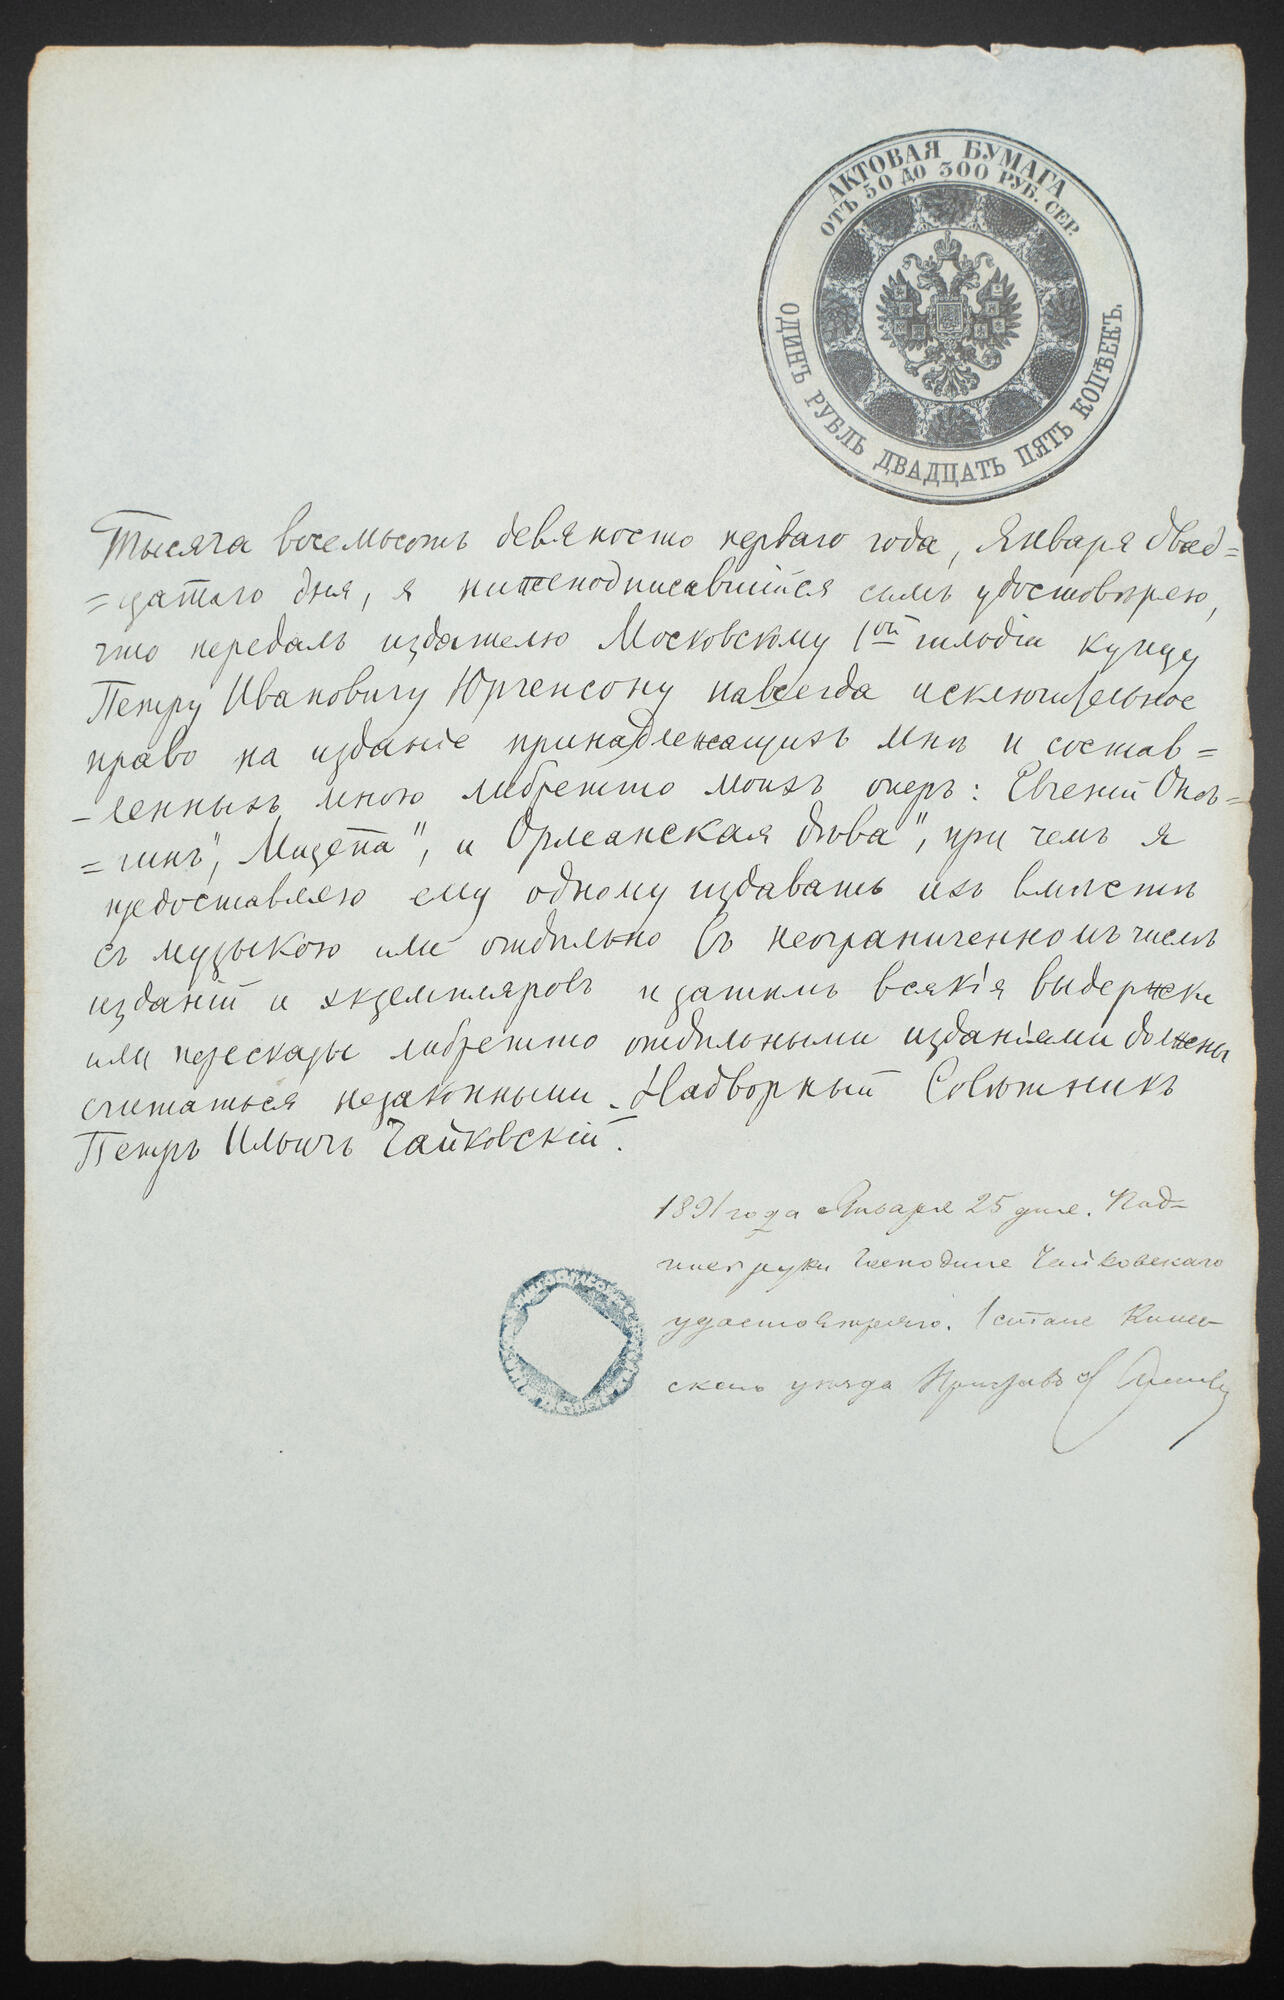 АКТОВАЯ БУМАГА
ОТЪ 50 ДО 300 РУБ. СЕР.
ОДИНЪ РУБЛЬ ДВАДЦАТЬ ПЯТЬ КОПѢЕКЪ.
Тысяча восемьсотъ девяносто перваго года, Января двад=
=цатаго дня, я нижеподписавшійся симъ удостовѣряю,
что передалъ издателю Московскому 1ой гильдіи купцу
Петру Ивановичу Юргенсону навсегда исключительное
право на изданіе принадлежащихъ мнѣ и состав=
-ленныхъ мною либретто моихъ оперъ: Евгеній Онѣ=
=гинъ", Мазепа", и Орлеанская дѣва", при чемъ я
предоставляю ему одному издавать ихъ вмѣстѣ
съ музыкою или отдѣльно въ неограниченномъ числѣ
изданій и экземпляровъ и затѣмъ всякія выдержки
или пересказы либретто отдѣльными изданіями должны
считаться незаконными. Надворный Совѣтникъ
Петръ Ильичъ Чайковскій.
1891 года Января 25 дня. Под-
пись руки Господина Чайковскаго
удостовѣряю. 1 стана Клин-
скаго уѣзда Приставъ